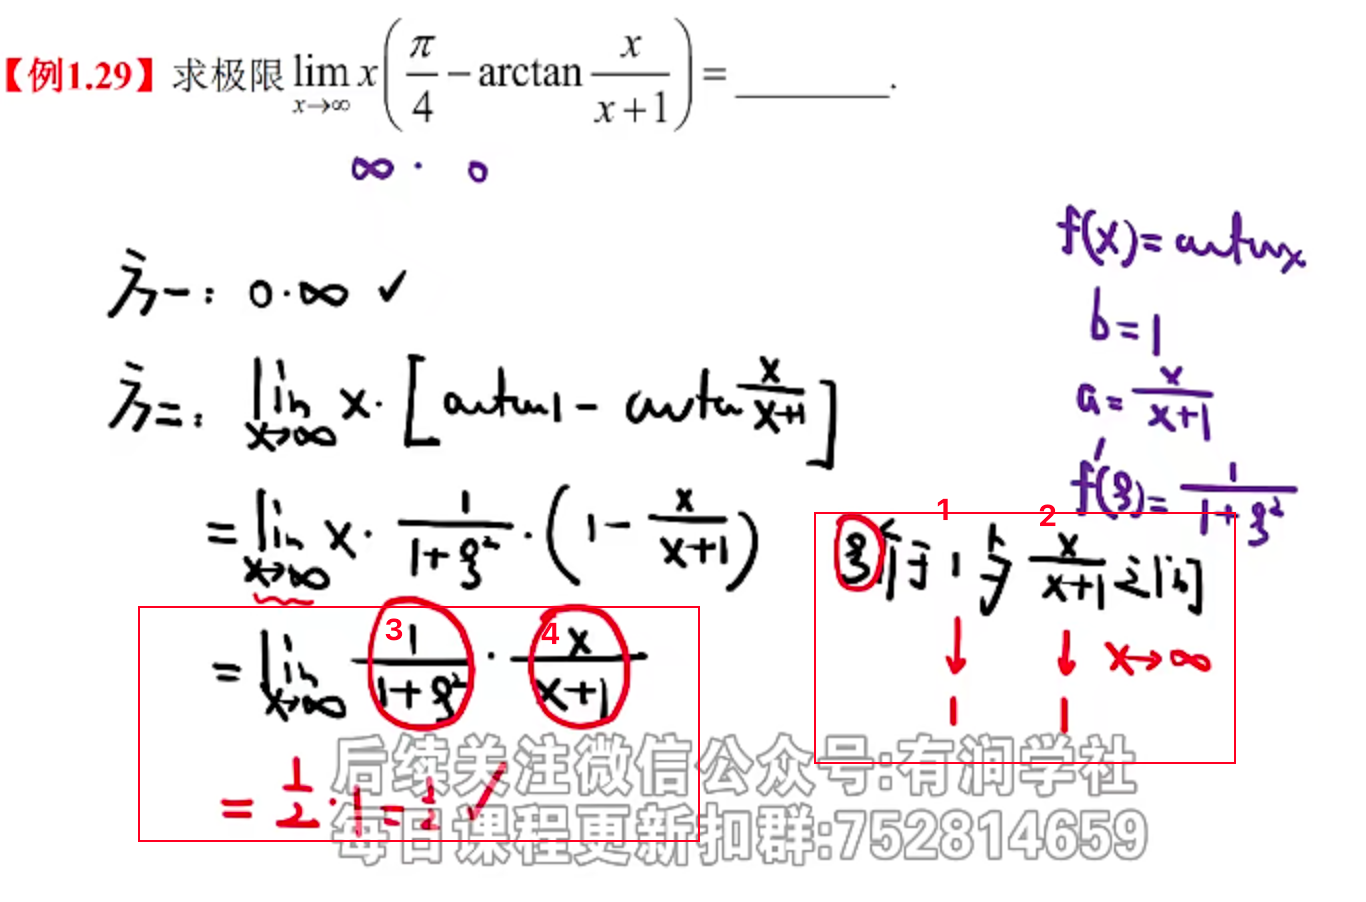 【例1.29】求极限 lim x→∞ x(π/4 − arctan x/(x+1)) = ______.
∞ · 0
方一: 0·∞ ✓
方二: lim x→∞ x·[arctan1 − arctan x/(x+1)]
= lim x→∞ x · 1/(1+ξ²) · (1 − x/(x+1))
= lim x→∞ 1/(1+ξ²) · x/(x+1)
= 1/2 · 1 = 1/2 ✓
3
4
f(x) = arctanx
b = 1
a = x/(x+1)
f'(ξ) = 1/(1+ξ²)
1 2
ξ介于 1 与 x/(x+1) 之间
↓ ↓ x→∞
1 1
后续关注微信公众号:有润学社
每日课程更新扣群:752814659